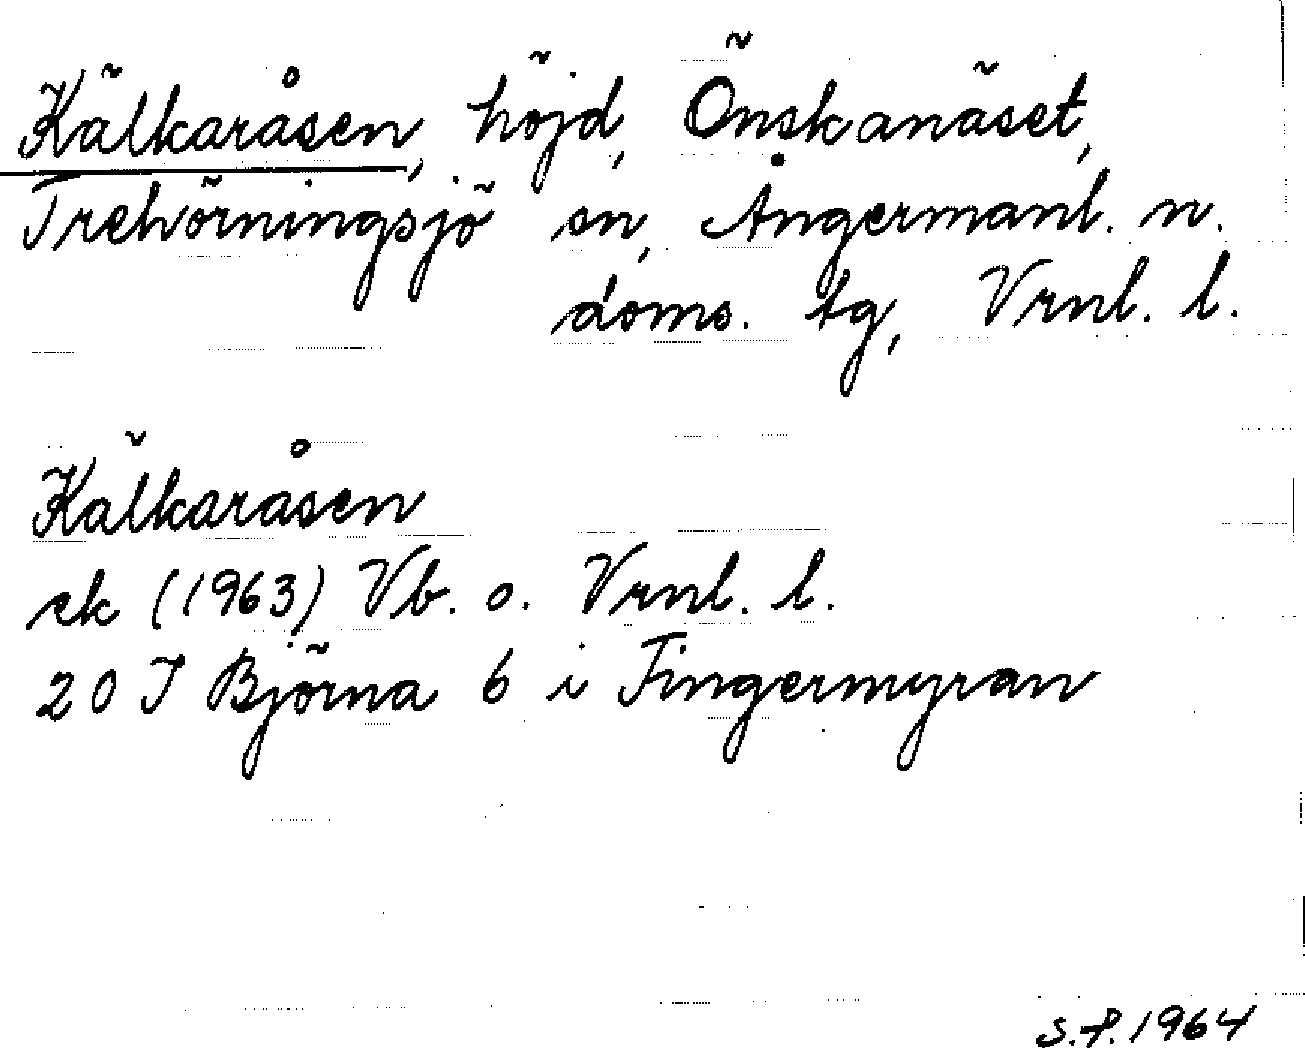 Kälkaråsen, höjd, Önskanäset,
Trehörningsjö sn, Ångermanl. n.
doms. tg, Vrnl. l.
Kälkaråsen
ek (1963) Vb. o. Vrnl. l.
20 I Björna 6 i Tingermyran
S.P. 1964